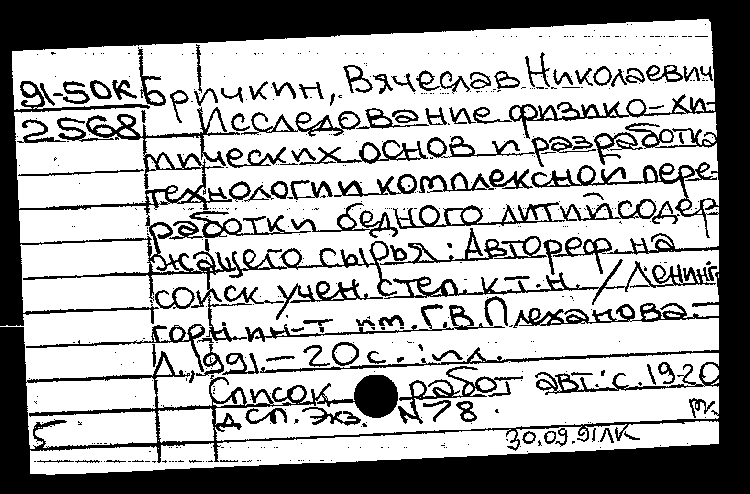 91-50К Бричкин, Вячеслав Николаевич
2568 Исследование физико-хи-
мических основ и разработка
технологии комплексной пере-
работки бедного литийсодер
жащего сырья: Автореф. на
соиск. учен. степ. к.т.н. / Ленингр
горн. ин-т им. Г.В. Плеханова.-
Л., 1991.-20 с.: ил.
Список работ авт.: с. 19-20
ДСП. Экз. N78.
5 30.09.91